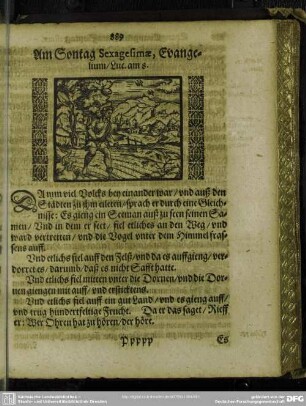 889
Am Sontag Sexagesimæ, Evange-
lium/ Luc. am 8.
DA nun viel Volcks bey einander war/ vnd auß den
Städten zu jhm eileten/ sprach er durch eine Gleich-
nisse: Es gieng ein Seeman auß zu seen seinen Sa-
men/ Vnd in dem er seet/ fiel etliches an den Weg/ vnd
ward vertretten/ vnd die Vogel vnter dem Himmel fras-
sens auff.
Vnd etlichs fiel auff den Felß/ vnd da es auffgieng/ ver-
dorret es/ darumb/ daß es nicht Safft hatte.
Vnd etlichs fiel mitten vnter die Dornen/ vnd die Dor-
nen giengen mit auff/ vnd ersticktens.
Vnd etlichs fiel auff ein gut Land/ vnd es gieng auff/
vnd trug hundertfeltige Frucht. Da er das saget/ Rieff
er: Wer Ohren hat zu hören/ der höre.
Ppppp
Es